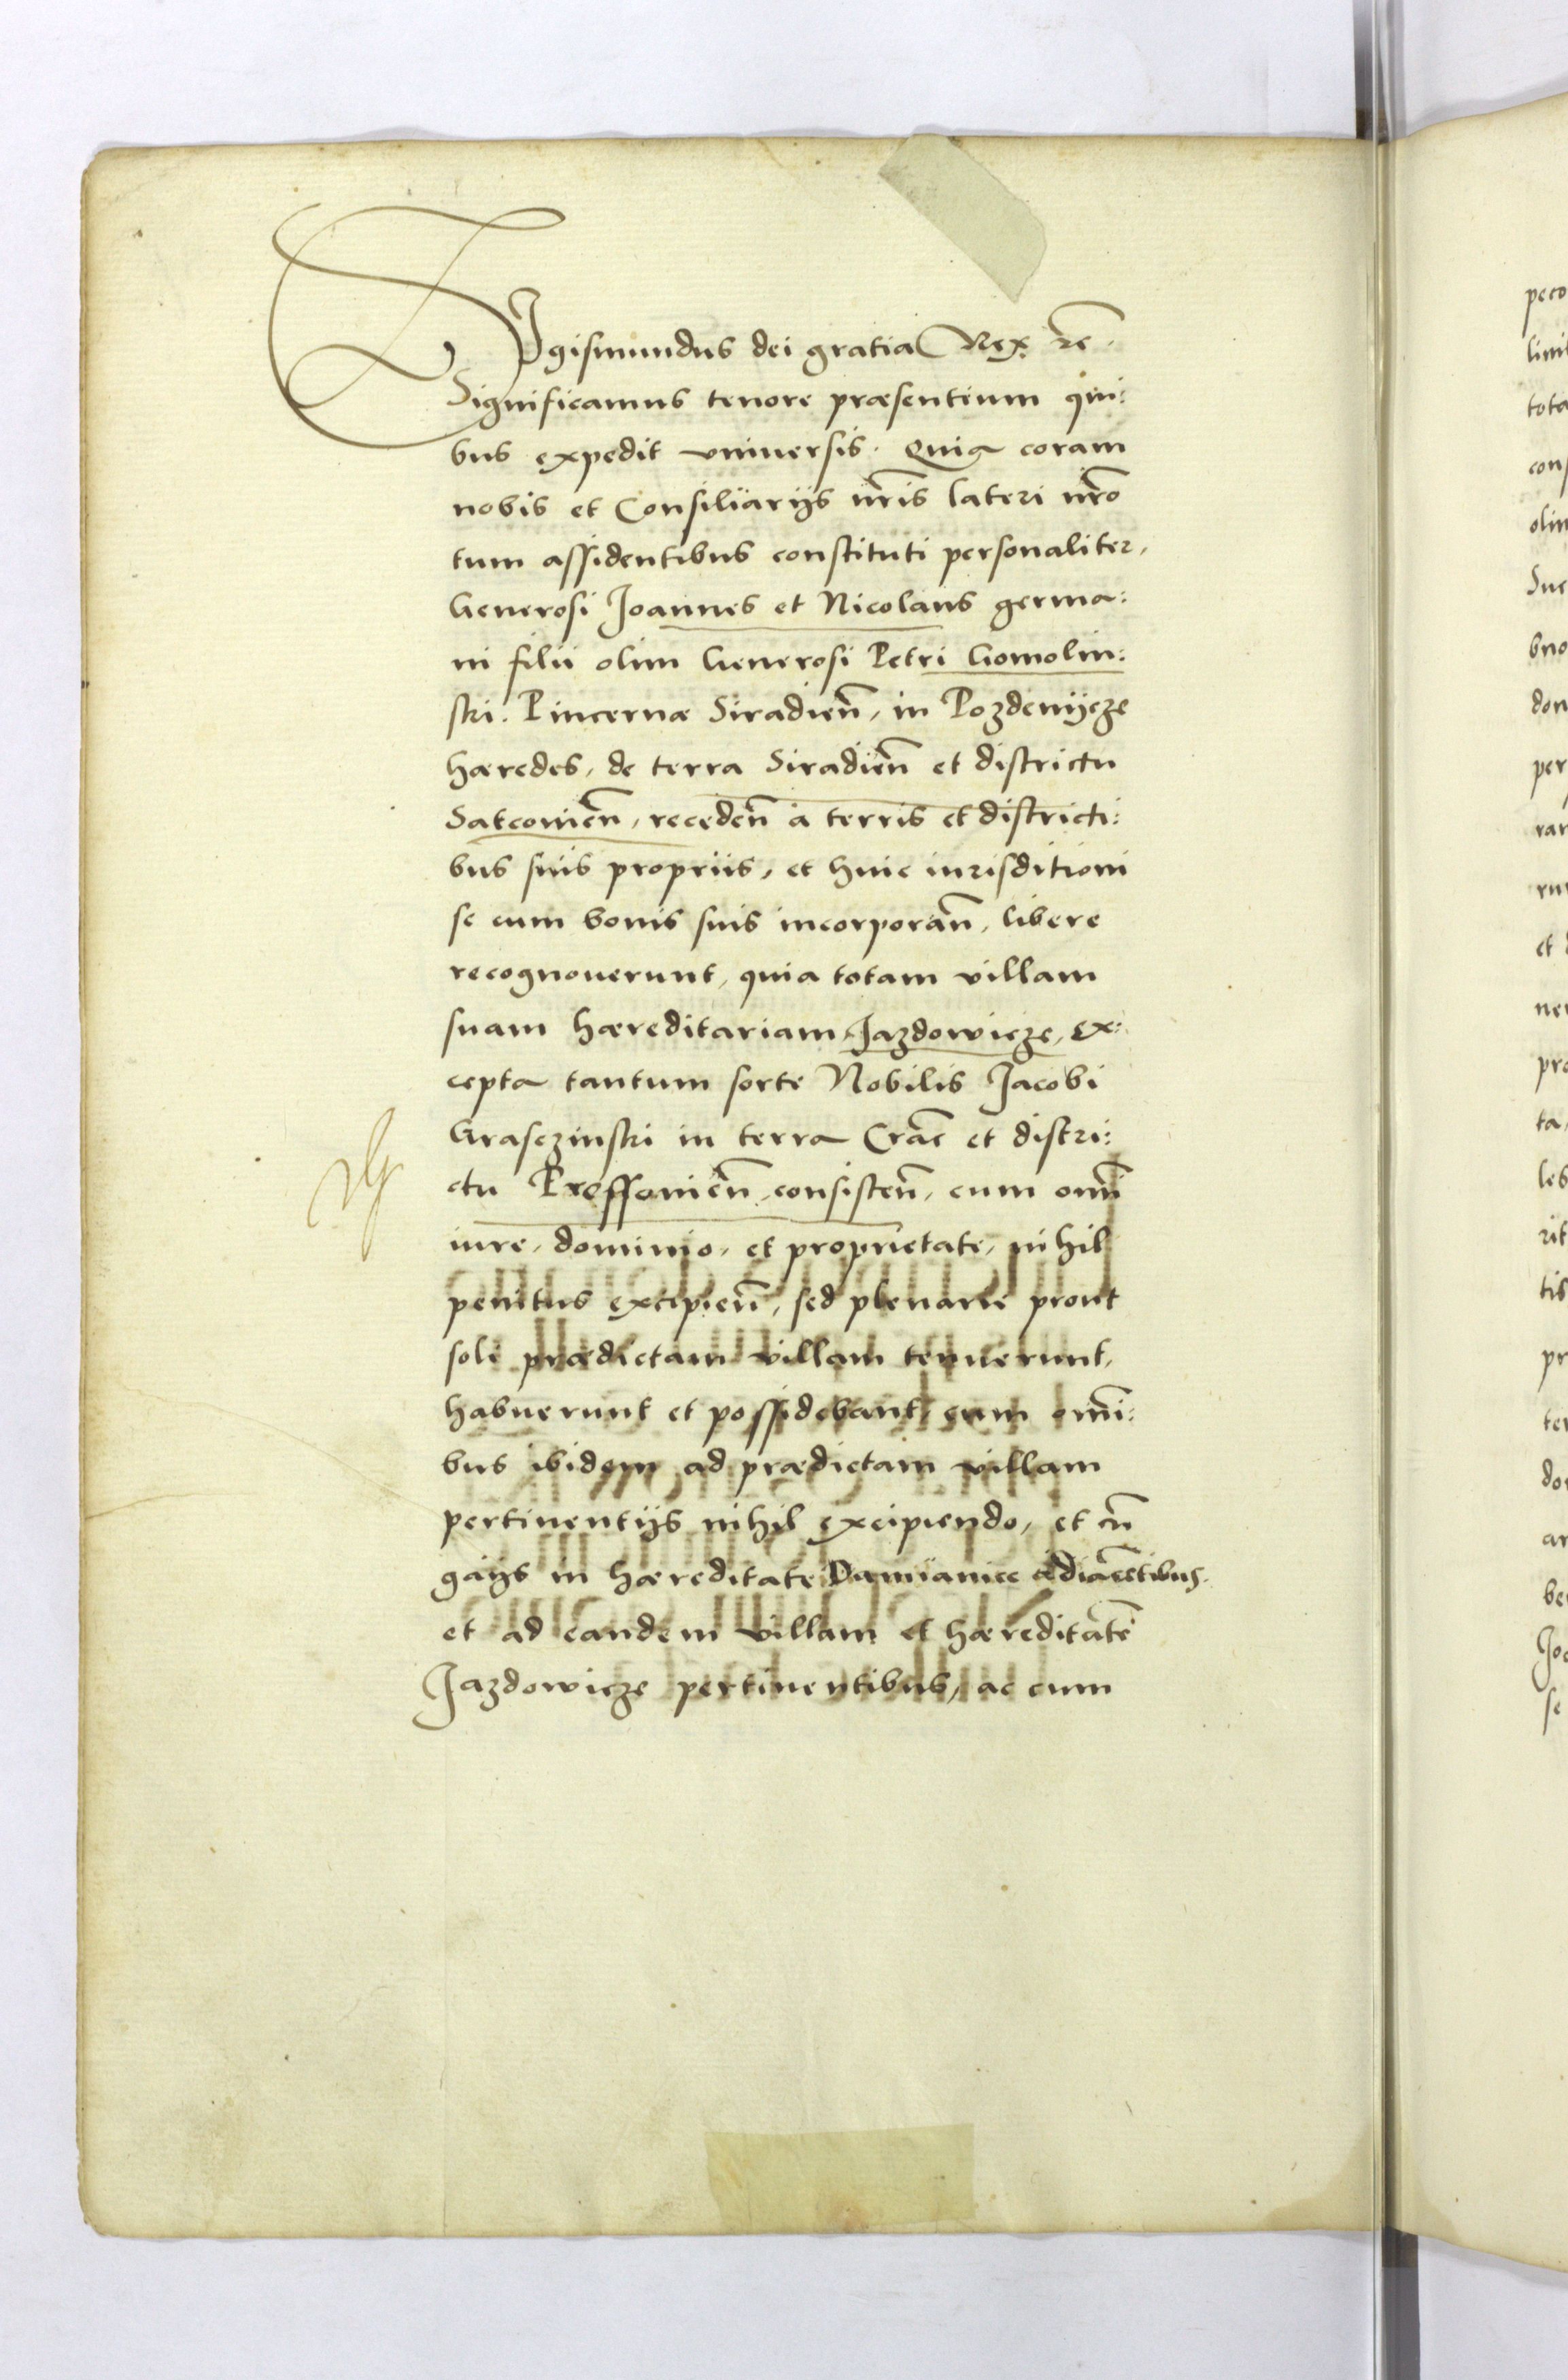 SIgismundus dei gratia Rex ꝛc̃.
Significamus tenore præsentium qui:
bus expedit vniuersis. Quia coram
nobis et Consiliarijs nr̃is lateri nr̃o
tum assidentibus constituti personaliter,
Generosi Joannes et Nicolaus germa:
ni filii olim Generosi Petri Gomolin:
ski. Pincernæ Siradieñ, in Pozdenijcze
hæredes, de terra Siradieñ et districtu
Satcouieñ, recedeñ a terris et districti:
bus suis propriis, et huic iurisditioni
se cum bonis suis incorporañ, libere
recognouerunt, quia totam villam
suam hæreditariam Jazdowicze, ex:
cepta tantum sorte Nobilis Jacobi
Grasczinski in terra Crac̃ et distri:
ctu Prossouieñ consisteñ, cum om̃i
iure, dominio, et proprietate, nihil
penitus excipieñ, sed plenarie prout
soli prædictam villam tenuerunt,
habuerunt et possidebant, cum om̃i:
bus ibidem ad prædictam villam
pertinentijs nihil excipiendo, et cũ
gaijs in hæreditate Damianice adiacẽtibus.
et ad eandem villam et hæreditatẽ
Jazdowicze pertinentibus, ac cum
peco
limi
tota
cons
olim
Sue
bno
don
per
rar
run
et
ner
pro
ta,
les
rit
tib
pr
ter
do
ar
be
Jo
se